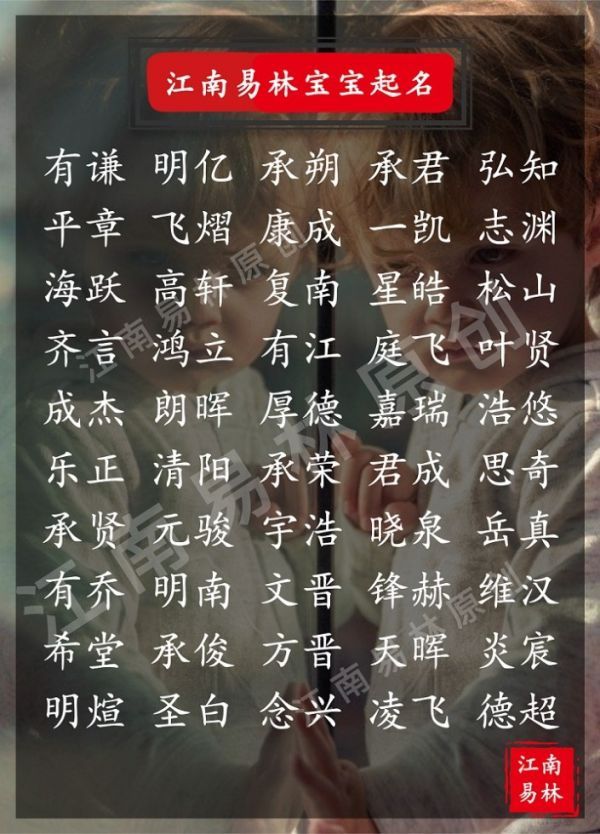 江南易林宝宝起名
有谦 明亿 承朔 承君 弘知
平章 飞熠 康成 一凯 志渊
海跃 高轩 复南 星皓 松山
齐言 鸿立 有江 庭飞 叶贤
成杰 朗晖 厚德 嘉瑞 浩悠
乐正 清阳 承荣 君成 思奇
承贤 元骏 宇浩 晓泉 岳真
有乔 明南 文晋 锋赫 维汉
希堂 承俊 方晋 天晖 炎宸
明煊 圣白 念兴 凌飞 德超
江南易林原创
江南易林原创
江南易林原创
江南
易林